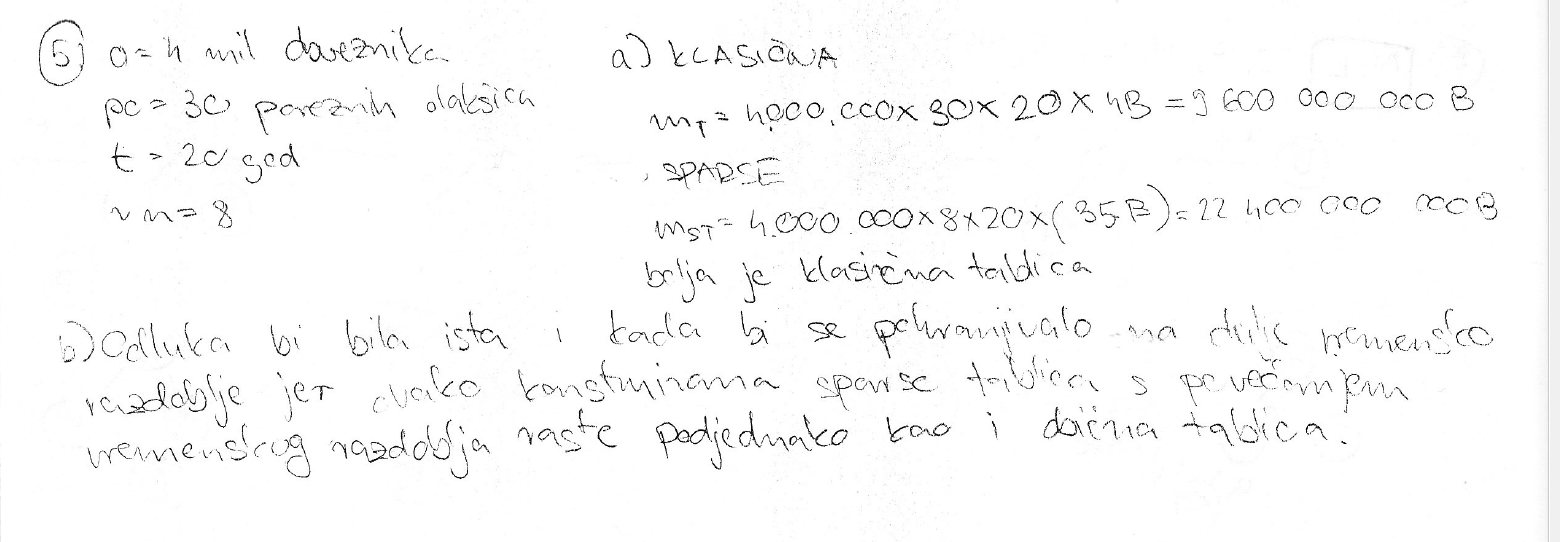 5) o = 4 mil doveznika
po = 30 poreznih olakšica
t = 20 god
vn = 8
a) KLASIČNA
m_T = 4.000.000 x 30 x 20 x 4B = 9 600 000 000 B
SPARSE
m_ST = 4.000.000 x 8 x 20 x (35B) = 22 400 000 000 B
bolja je klasična tablica
b) Odluka bi bila ista i kada bi se pohranjivalo na dulje vremensko
razdoblje jer ovako konstruirana sparse tablica s povečanjem
vremenskog razdoblja raste podjednako kao i obična tablica.